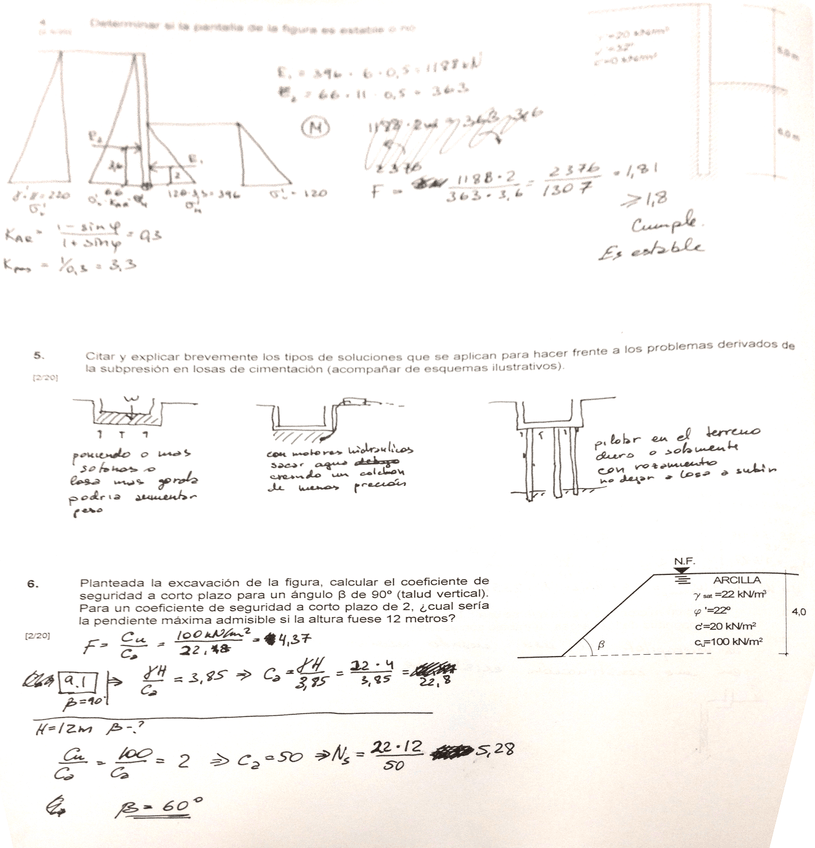 4
Determinar si la pantalla de la figura es estable o no
E₁ = 396 · 6 · 0,5 = 1188 kN
E₂ = 66 · 11 · 0,5 = 363
M
2376
F = 1188 · 2 / 363 · 3,6 = 2376 / 1307 = 1,81
≥ 1,8
Cumple.
Es estable
γ=20 kN/m³
φ'=32º
6,0 m
6,0 m
E₁
3,6
2
120·3,3 = 396
= 120
= 220
66
K = 1 - sin φ / 1 + sin φ = 0,3
K = 1/0,3 = 3,3
5.
[2/20]
Citar y explicar brevemente los tipos de soluciones que se aplican para hacer frente a los problemas derivados de
la subpresión en losas de cimentación (acompañar de esquemas ilustrativos).
W
poniendo o mas
sotanos o
losa mas gorda
podria aumentar
peso
con motores hidraulicos
sacar agua debajo
creando un colchon
de menos precion
pilotar en el terreno
duro o solamente
con rozamiento
no dejar a losa a subir
6.
[2/20]
Planteada la excavación de la figura, calcular el coeficiente de
seguridad a corto plazo para un ángulo β de 90º (talud vertical).
Para un coeficiente de seguridad a corto plazo de 2, ¿cual sería
la pendiente máxima admisible si la altura fuese 12 metros?
N.F.
ARCILLA
γ sat =22 kN/m³
φ '=22º
c'=20 kN/m²
cᵤ=100 kN/m²
4,0
β
F = Cu / C₂ = 100 kN/m² / 22,8 = 4,37
9.1 ⇒ γH / C₂ = 3,85 ⇒ C₂ = γH / 3,85 = 22 · 4 / 3,85 = 22,8
β = 90
H = 12m β - ?
Cu / C₂ = 100 / C₂ = 2 ⇒ C₂ = 50 ⇒ Nₛ = 22 · 12 / 50 5,28
β = 60°